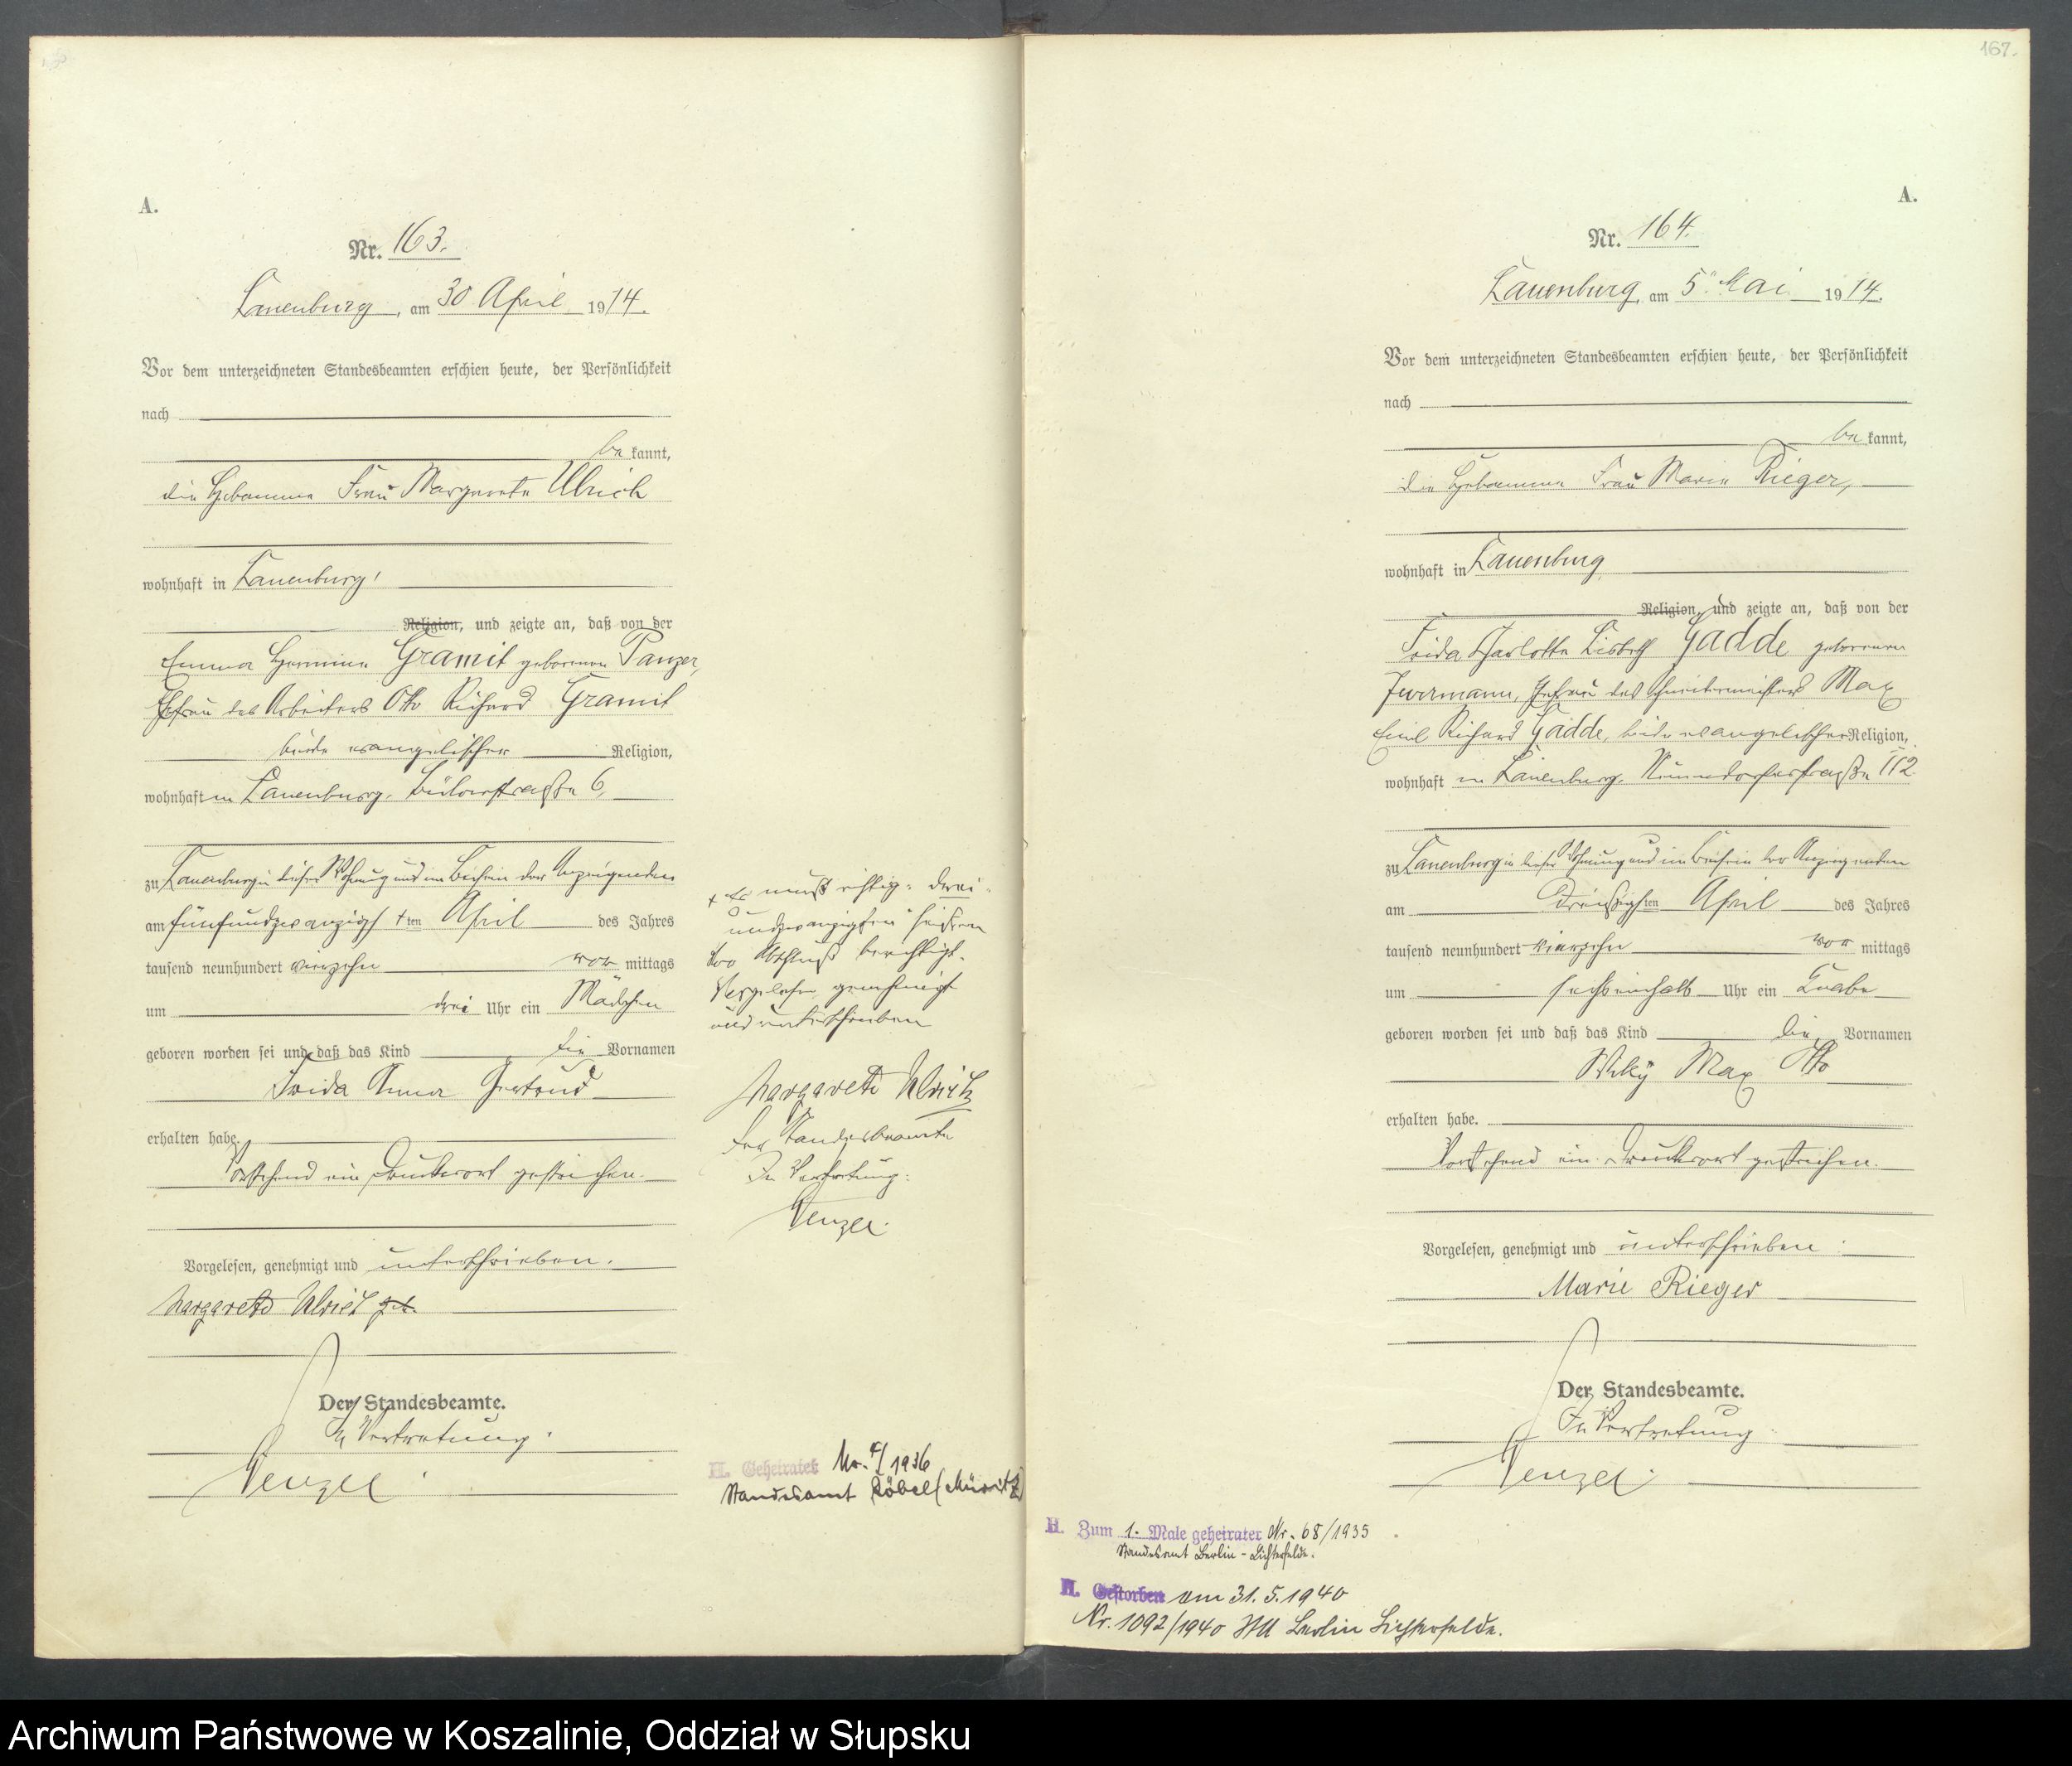 A.
Nr. 163.
Lauenburg, am 30 April 1914.
Vor dem unterzeichneten Standesbeamten erschien heute, der Persönlichkeit
nach
be kannt,
die Hebamme Frau Margarete Ulrich
wohnhaft in Lauenburg,
Religion, und zeigte an, daß von der
Emma Hermine Gramit geborenen Panzer,
Ehefrau des Arbeiters Otto Richard Gramit
beide evangelischer Religion,
wohnhaft in Lauenburg, Bülowstraße 6,
zu Lauenburg in dieser Wohnung und im Beisein der Anzeigenden
am fünfundzwanzigst + ten April des Jahres
tausend neunhundert vierzehn vor mittags
um drei Uhr ein Mädchen
geboren worden sei und daß das Kind die Vornamen
Frida Anna Gertrud
erhalten habe.
Vorstehend ein Druckwort gestrichen.
Vorgelesen, genehmigt und unterschrieben.
Margarete Ulrich
Der Standesbeamte.
In Vertretung.
Wenzel.
+ Es muß richtig: "drei-
undzwanzigsten" heißen
vor Abschluß berichtigt.
Vorgelesen, genehmigt
und unterschrieben
Margarete Ulrich
Der Standesbeamte
In Vertretung:
Wenzel.
H. Geheiratet Nr. 4/1936
Standesamt Röbel (Müritz)
167.
A.
Nr. 164.
Lauenburg, am 5" Mai 1914.
Vor dem unterzeichneten Standesbeamten erschien heute, der Persönlichkeit
nach
be kannt,
die Hebamme Frau Marie Rieger,
wohnhaft in Lauenburg
Religion, und zeigte an, daß von der
Frida Charlotte Lisbeth Gadde geborenen
Ehefrau des Schneidermeisters Max
Emil Richard Gadde, beide evangelischer Religion,
wohnhaft in Lauenburg, Neuendorferstraße 112
zu Lauenburg in dieser Wohnung und im Beisein der Anzeigenden
am Dreißigsten April des Jahres
tausend neunhundert vierzehn vor mittags
um sechseinhalb Uhr ein Knabe
geboren worden sei und daß das Kind die Vornamen
Willy Max Otto
erhalten habe.
Vorstehend ein Druckwort gestrichen.
Vorgelesen, genehmigt und unterschrieben.
Marie Rieger
Der Standesbeamte.
In Vertretung.
Wenzel.
H. Zum 1. Male geheiratet Nr. 68/1935
Standesamt Berlin-Lichterfelde.
H. Gestorben am 31.5.1940
Nr. 1092/1940 StA Berlin Lichterfelde.
Archiwum Państwowe w Koszalinie, Oddział w Słupsku